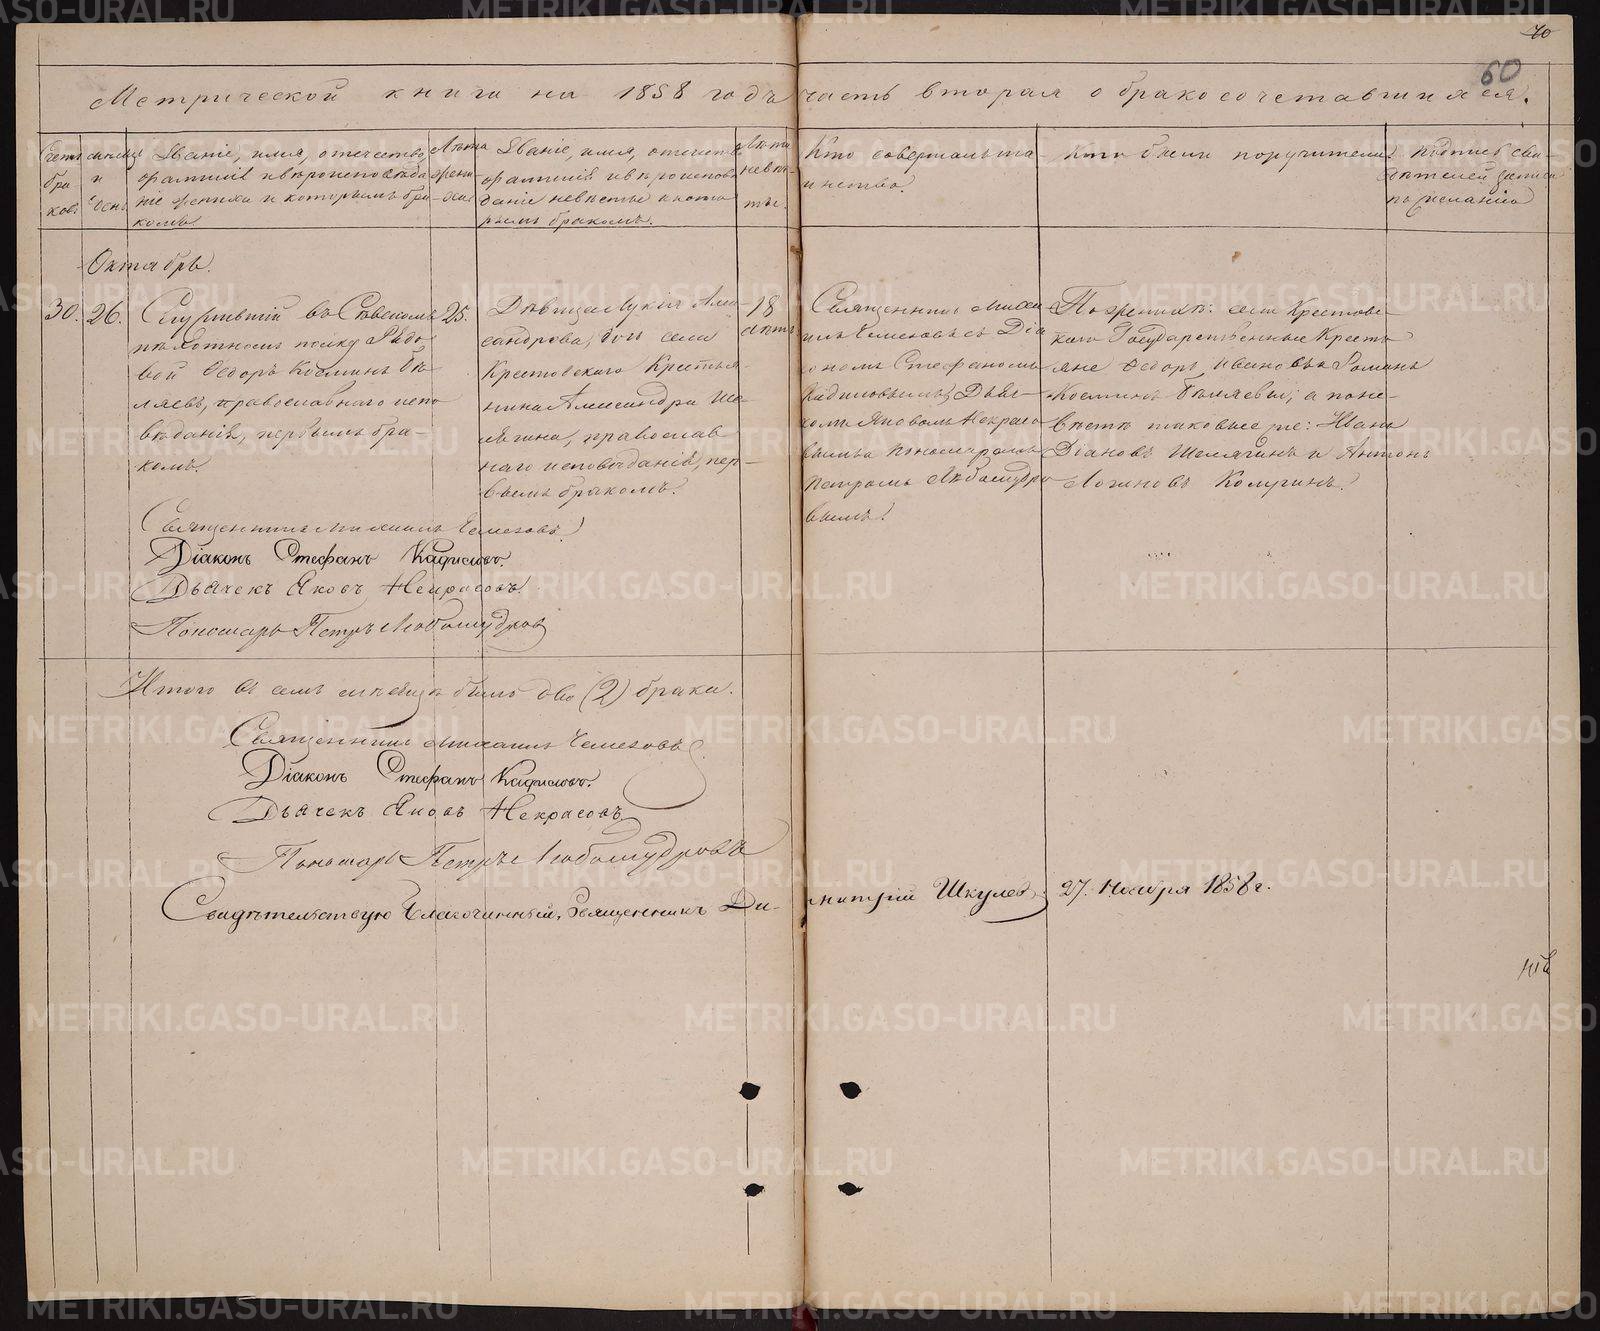 40
60
Метрической книги на 1858 годъ часть вторая о бракосочетавшихся.
Счетъ
бра-
ковъ
Мѣсяцъ
и
день
Званіе, имя, отчество,
фамилія и вѣроисповѣда-
ніе жениха и которымъ бра-
комъ.
Лѣта
жени-
ха
Званіе, имя, отчество
фамилія и вѣроиспов
даніе невѣсты и кото
рымъ бракомъ.
Лѣта
невѣ-
сты.
Кто совершалъ та-
инство.
Кто были поручители
Подпись сви-
дѣтелей записи
по желанію
Октябрь.
30.
26.
Служившій въ Сѣвскомъ
пѣхотномъ полку Рядо-
вой Ѳедоръ Косминъ Бѣ-
ляевъ, православнаго испо
вѣданія, первымъ бра-
комъ.
25.
Дѣвица Лукія Алек-
сандрова, дочь села
Крестовского Крестья-
нина Александра Ше-
лягина, православ
наго исповѣданія, пер-
вымъ бракомъ.
18
лѣтъ
Священникъ Миха-
илъ Чемезовъ съ Діа
кономъ Стефаномъ
Кадиковымъ, Дьяч-
комъ Яковомъ Некрасо
вымъ и Пономаремъ
Петромъ Любомудро
вымъ.
По женихѣ: села Крестовс-
каго Государственные Кресть
яне Ѳедоръ Ивановъ и Романъ
Косминъ Бѣляевы; а по не-
вѣстѣ таковые же: Иванъ
Діановъ Шелягинъ и Антонъ
Логиновъ
Священникъ Михаилъ Чемезовъ
Діаконъ Стефанъ
Дьячекъ Яковъ Некрасовъ
Пономарь Петръ Любомудровъ
Итого въ семъ мѣсяцѣ было два (2) брака.
Священникъ Михаилъ Чемезовъ
Діаконъ Стефанъ
Дьячекъ Яковъ Некрасовъ
Пономарь Петръ Любомудровъ
Свидѣтельствую Благочинный, Священникъ Ди-митрій Шкулев, 27. Ноября 1858 г.
METRIKI.GASO-URAL.RU